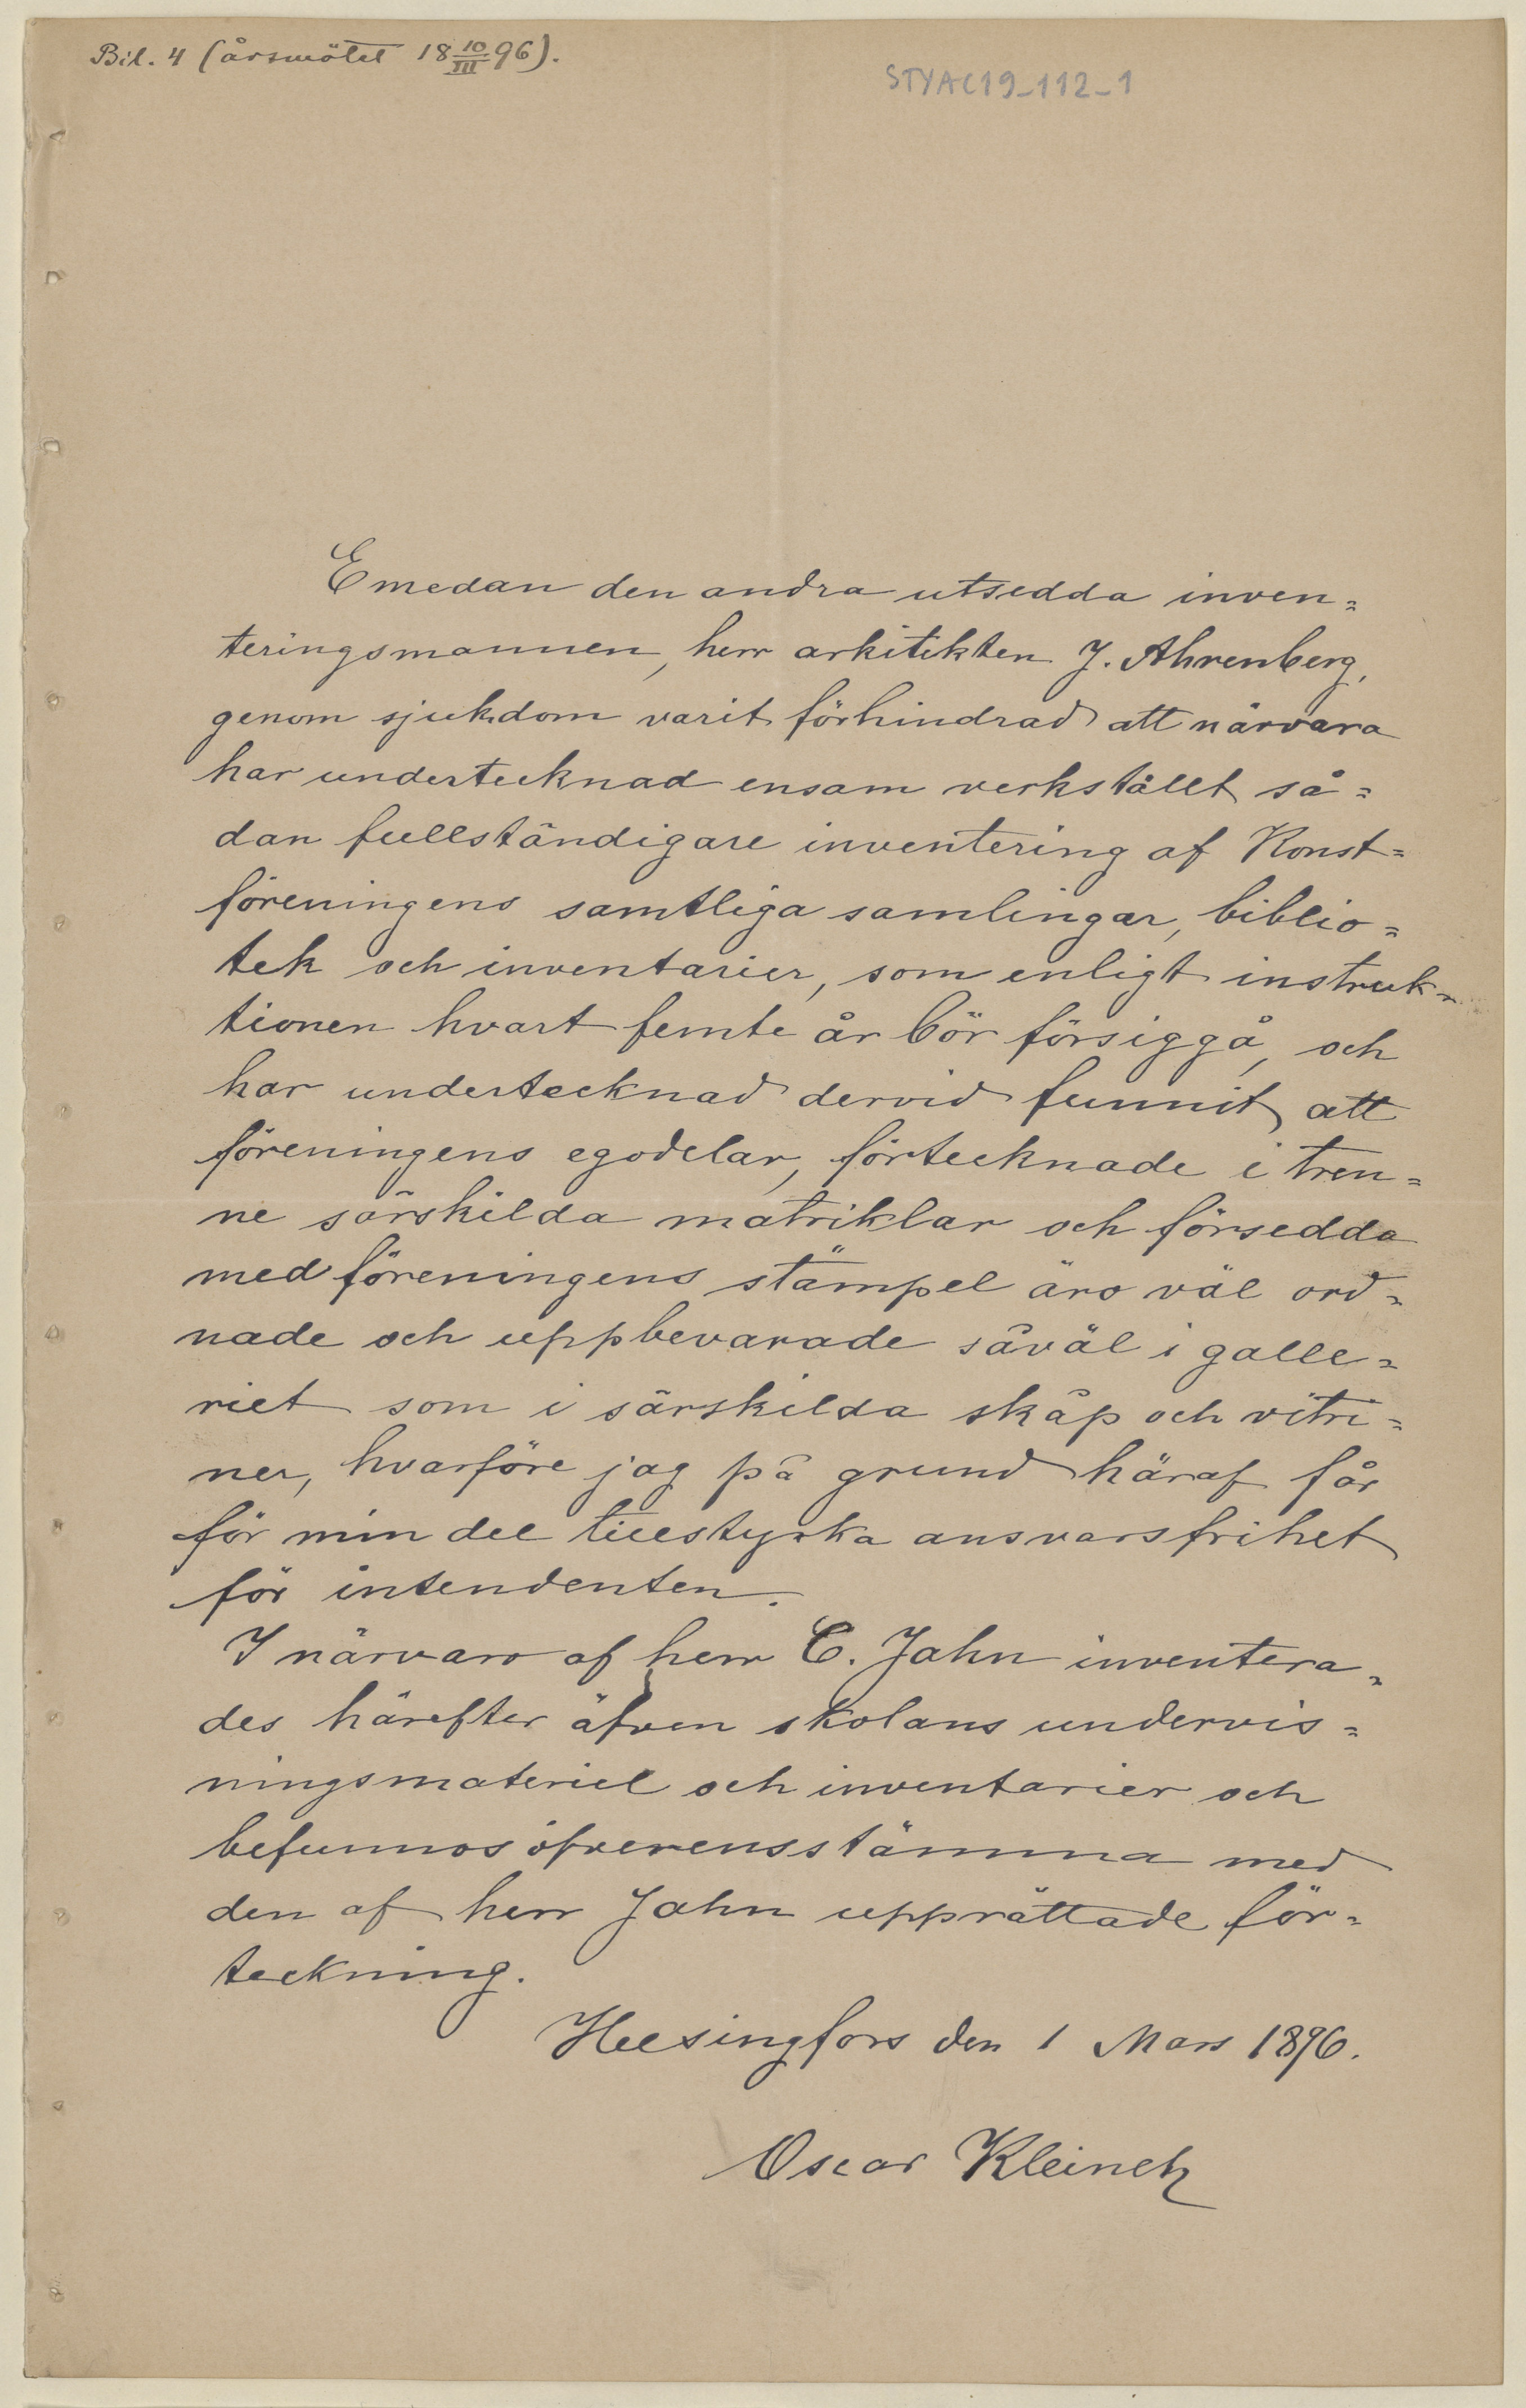 Bil. 4 (årsmötet 18 10/III 96).
STYAC19_112_1
Emedan den andra utsedda inven=
teringsmannen, herr arkitekten J. Ahrenberg,
genom sjukdom varit förhindrad att närvara
har undertecknad ensam verkställt så=
dan fullständigare inventering af Konst=
föreningens samtliga samlingar, biblio=
tek och inventarier, som enligt instruk=
tionen hvart femte år bör försiggå, och
har undertecknad dervid funnit att
föreningens egodelar, förtecknade i tren=
ne särskilda matriklar och försedda
med föreningens stämpel äro väl ord=
nade och uppbevarade såväl i galle=
riet som i särskilda skåp och vitri=
ner, hvarföre jag på grund häraf får
för min del tillstyrka ansvarsfrihet
för intendenten.
I närvaro af herr C. Jahn inventera=
des härefter äfven skolans undervis=
ningsmateriel och inventarier och
befunnos öfverensstämma med
den af herr Jahn upprättade för=
teckning.
Helsingfors den 1 Mars 1896.
Oscar Kleineh